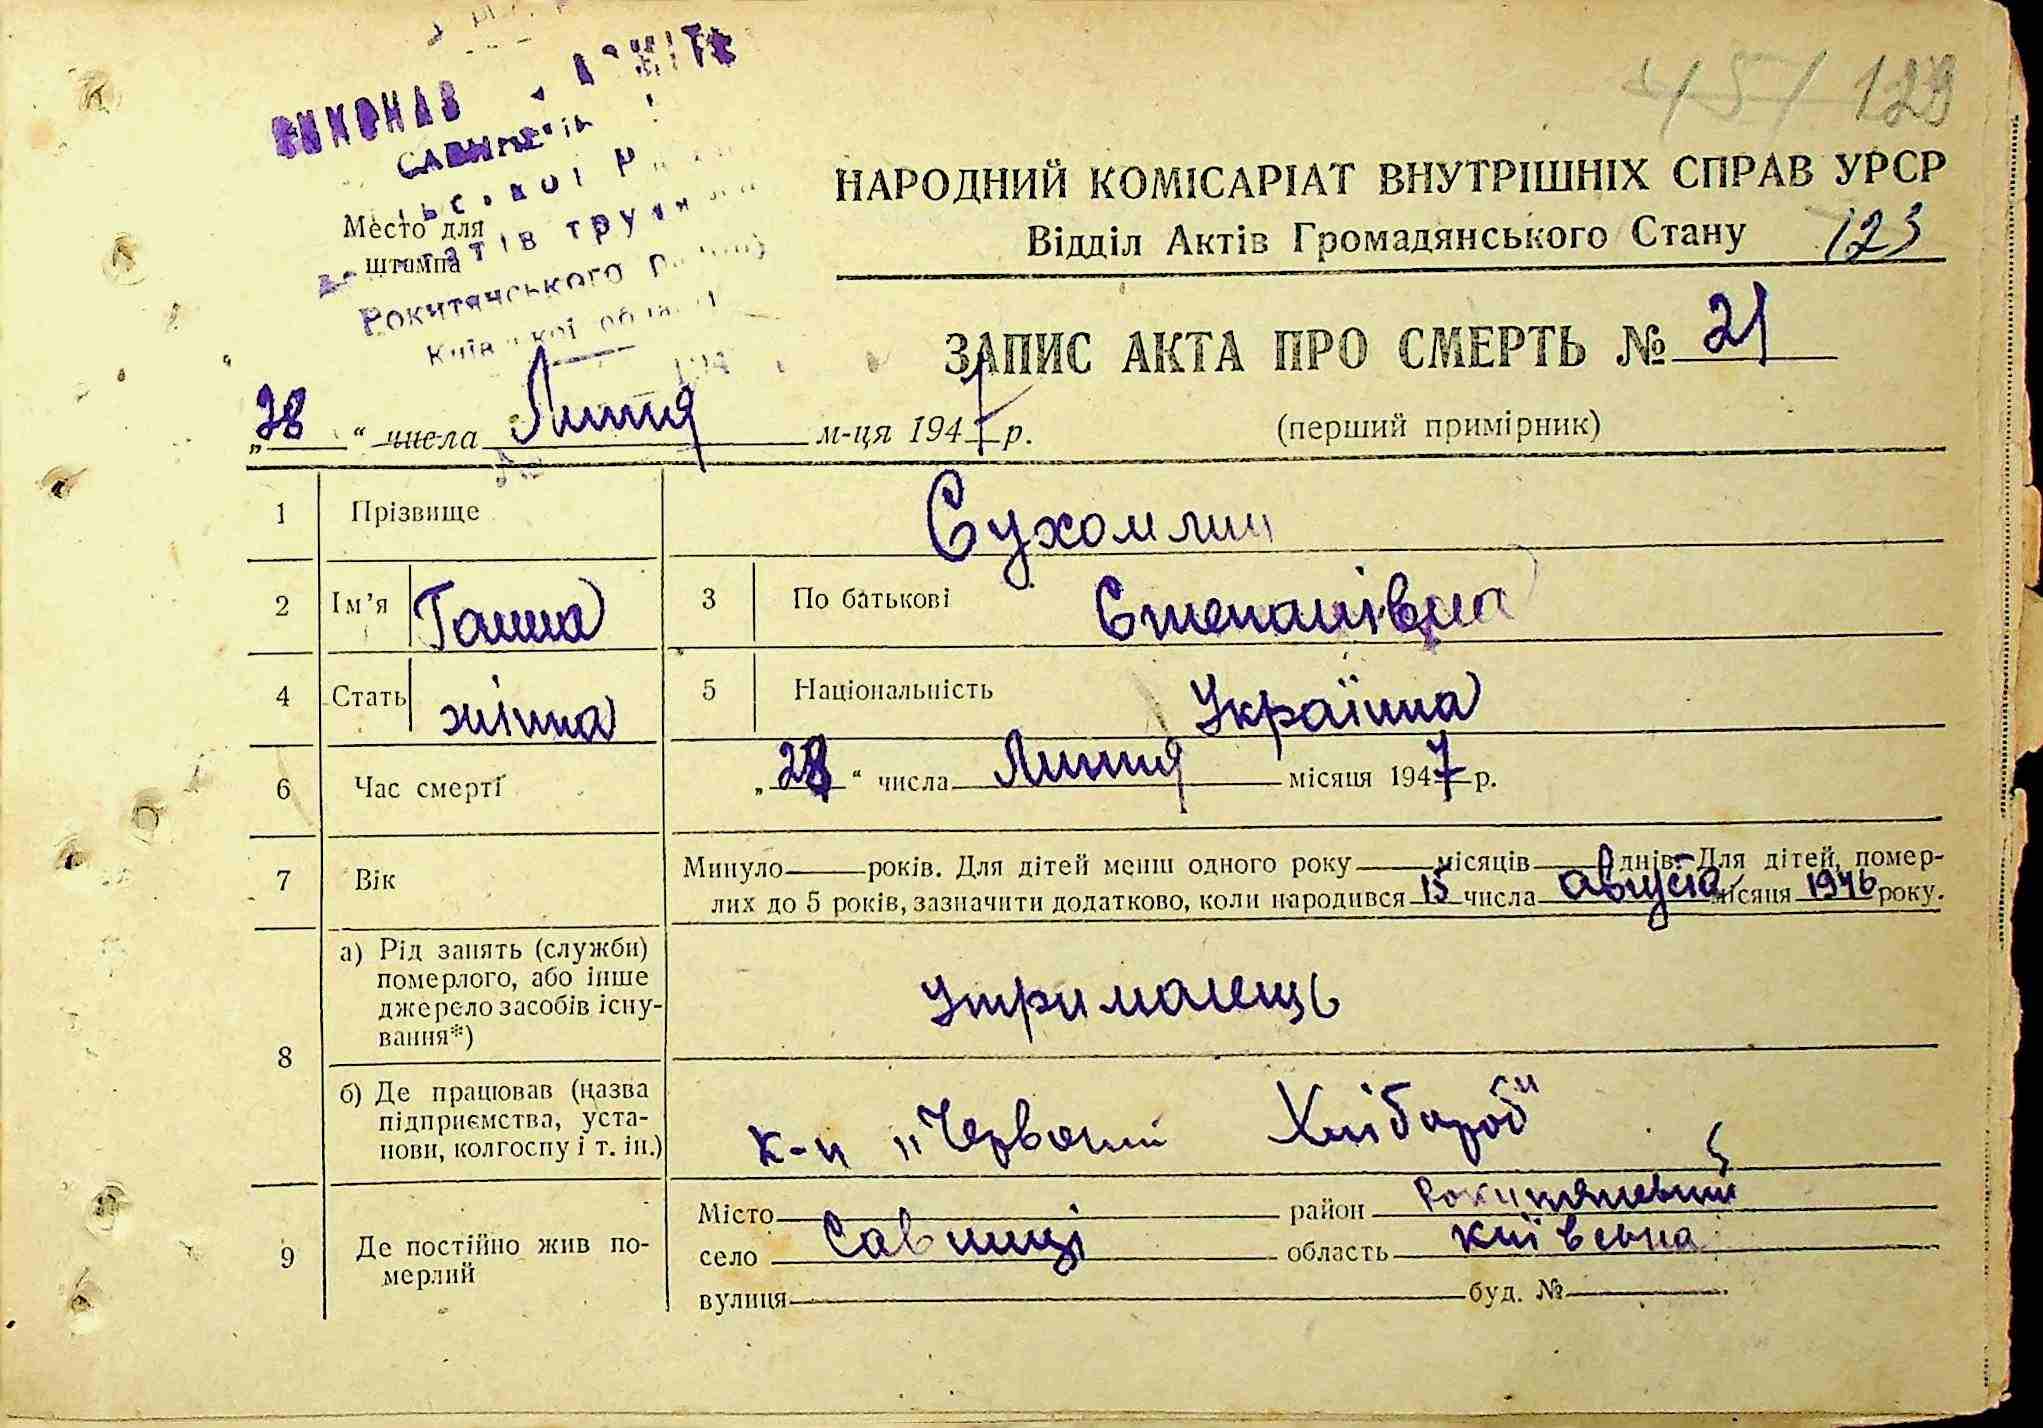 ВИКОНАВ
Рокитянського
Место для
штампа
129
НАРОДНИЙ КОМІСАРІАТ ВНУТРІШНІХ СПРАВ УРСР
Відділ Актів Громадянського Стану 123
ЗАПИС АКТА ПРО СМЕРТЬ № 21
„28“ числа Липня м-ця 1947 р. (перший примірник)
1 Прізвище Сухомлин
2 Ім’я Ганна 3 По батькові Степанівна
4 Стать жінка 5 Національність Українка
6 Час смерті „28“ числа Липня місяця 1947 р.
7 Вік Минуло років. Для дітей менш одного року місяців днів. Для дітей, помер-
лих до 5 років, зазначити додатково, коли народився 15 числа августа місяця 1946 року.
8 а) Рід занять (служби)
померлого, або інше
джерело засобів існу-
вання*) утриманець
б) Де працював (назва
підприємства, уста-
нови, колгоспу і т. ін.) к-п „Червоний Хлібороб“
9 Де постійно жив по-
мерлий
Місто район Рокитянський
село Савинці область Київська
вулиця буд. №